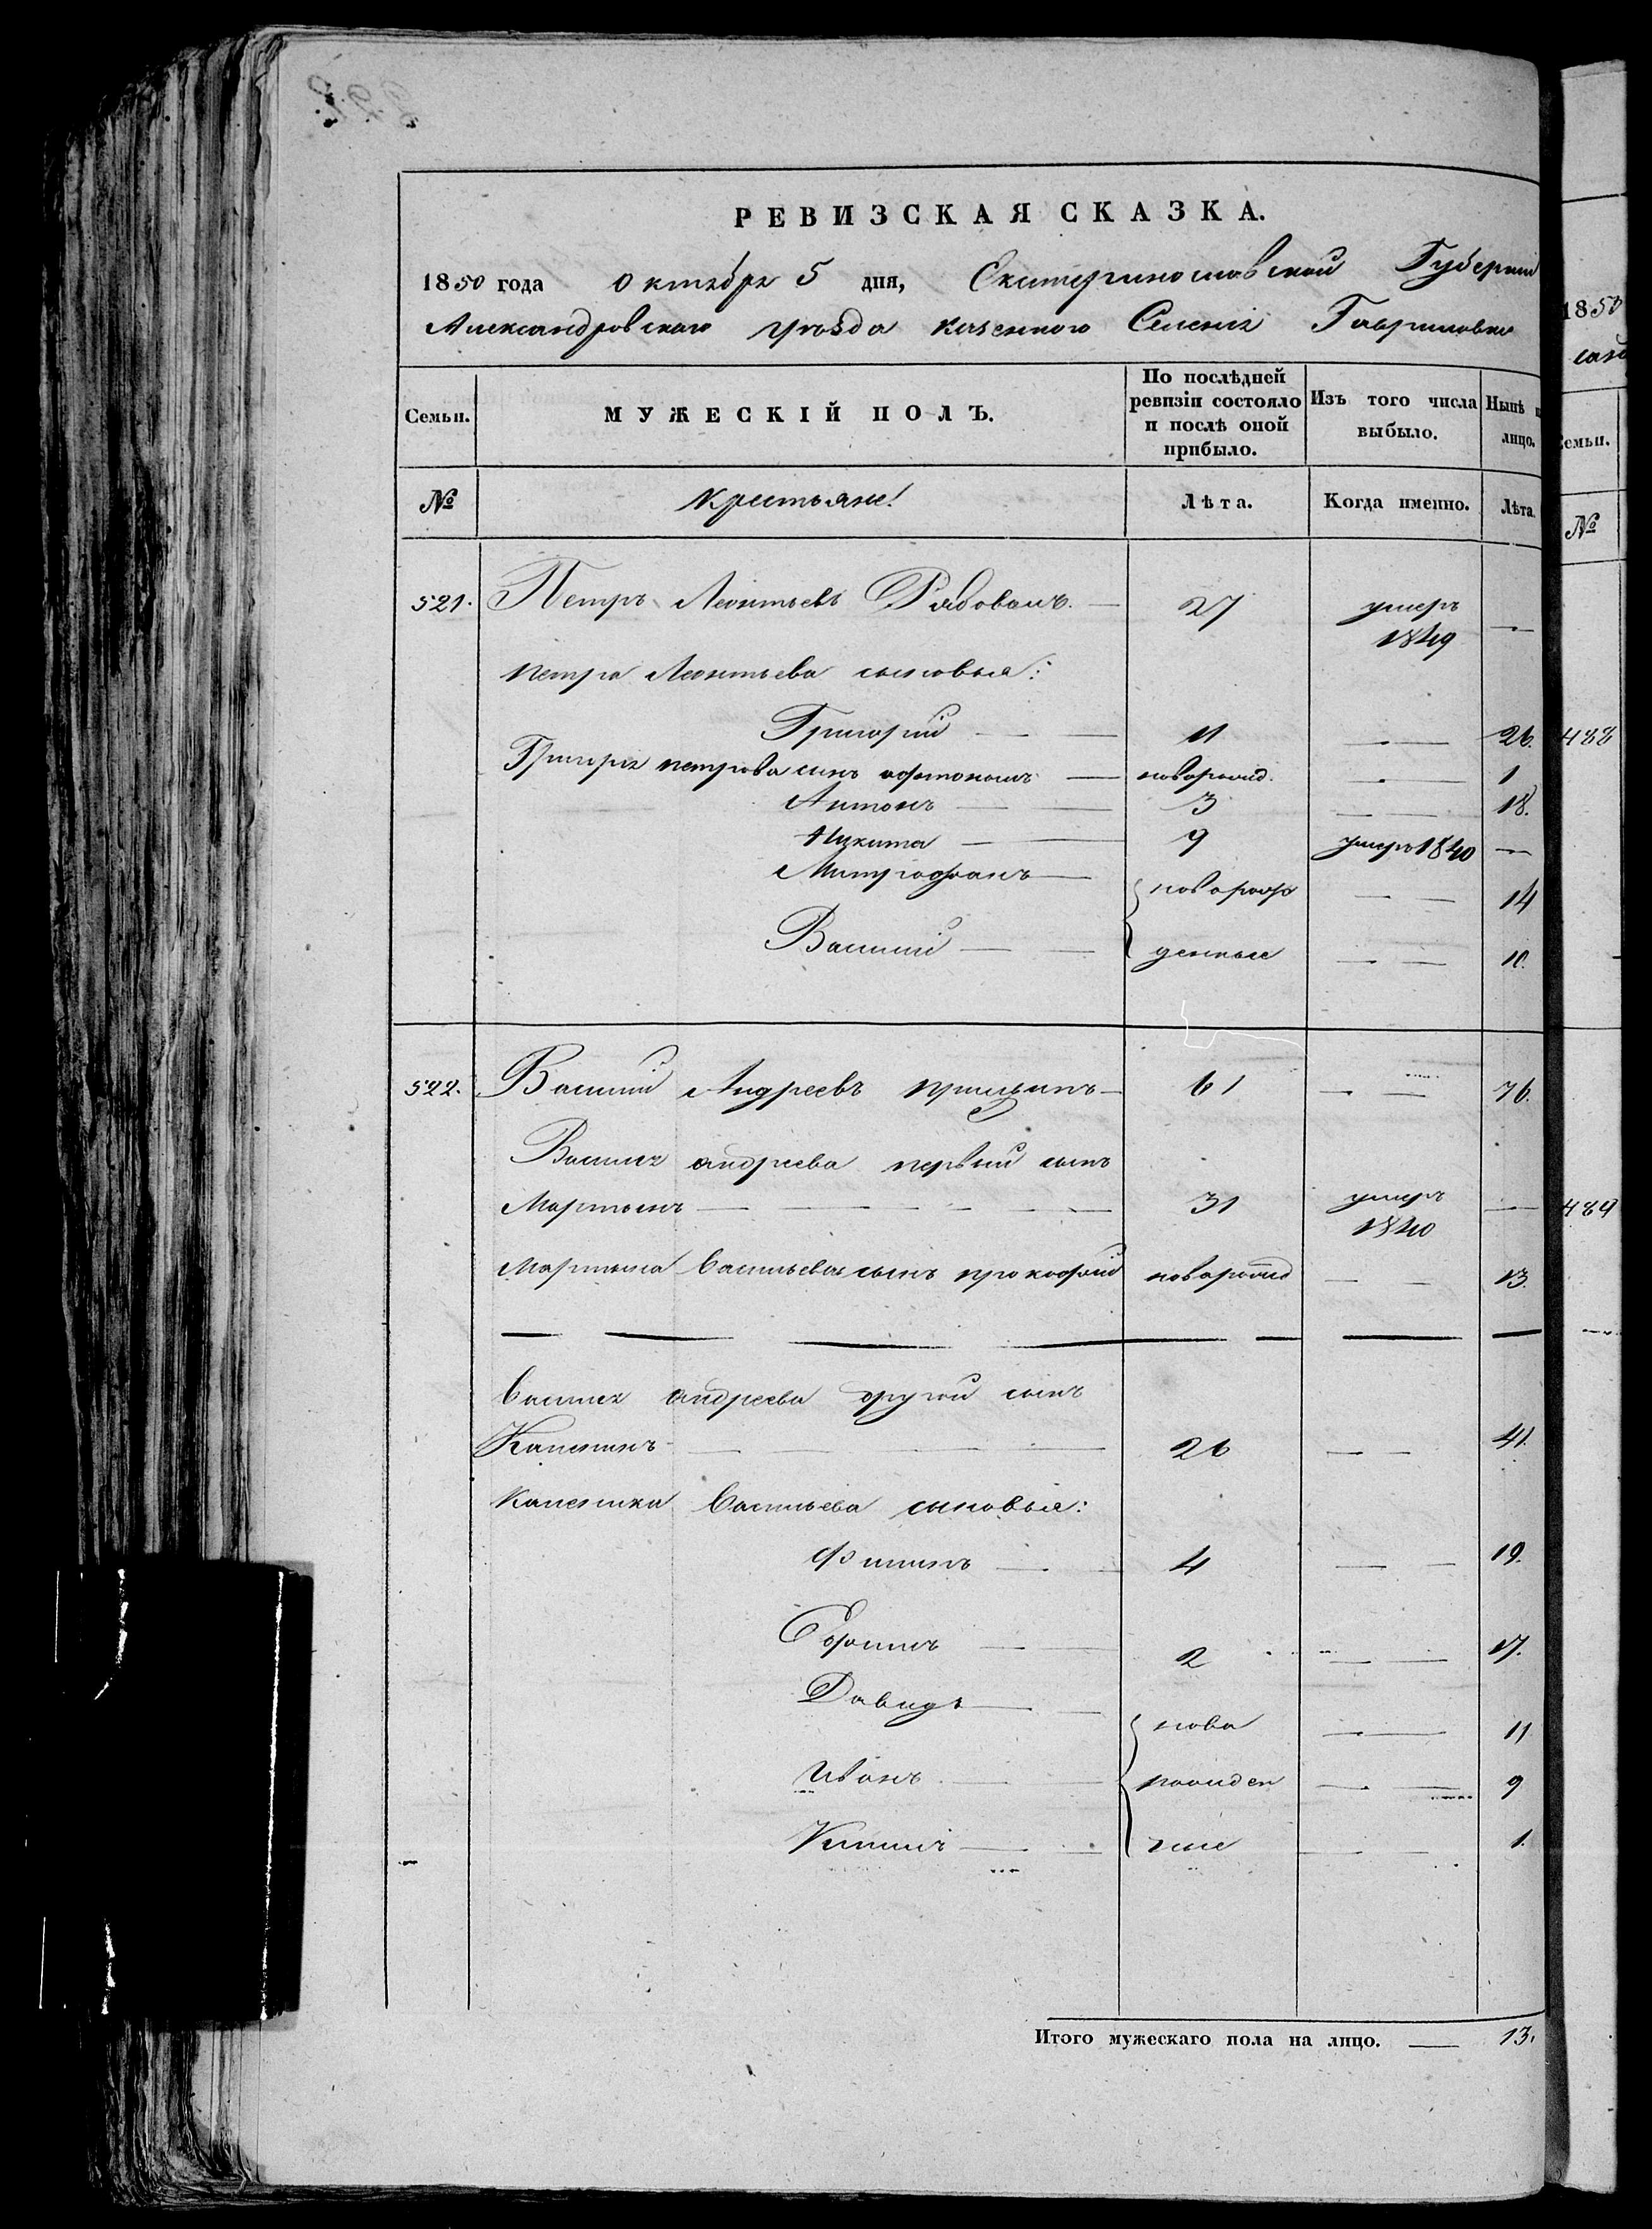 РЕВИЗСКАЯ СКАЗКА.
1850 года октября 5 дня, Екатеринославской Губерніи
Александровскаго уѣзда казеннаго Селенія Гавриловки
Семьи.
МУЖЕСКІЙ ПОЛЪ.
По послѣдней ревизіи состояло и послѣ оной прибыло.
Изъ того числа выбыло.
Нынѣ на лицо.
№ крестьяне: Лѣта. Когда именно. Лѣта.
521. Петръ Леонтьевъ Рябоволъ. — 27 умеръ 1849 —
Петра Леонтьева сыновья:
Григорій — 11 — 26.
Григорія петрова сынъ новорожд. — 1
Антонъ — 3 — 18.
Никита — 9 умеръ 1840 —
Митрофанъ — новорож — 14
Василій — денные — 10.
522. Василій Андреевъ — 61 — 76.
Василія андреева первый сынъ
Мартынъ — 31 умеръ 1840 —
Мартына Васильева сынъ прокофій новорожд — 13.
Василія андреева другой сынъ
Калениκъ — 26 — 41.
Каленика Васильева сыновья:
Филипъ — 4 — 19.
Ефимъ — 2 — 17.
Давидъ — ново — 11
Иванъ — рожден — 9
— ные — 1.
Итого мужескаго пола на лицо. — 13.
1850
Семьи.
№
488
489